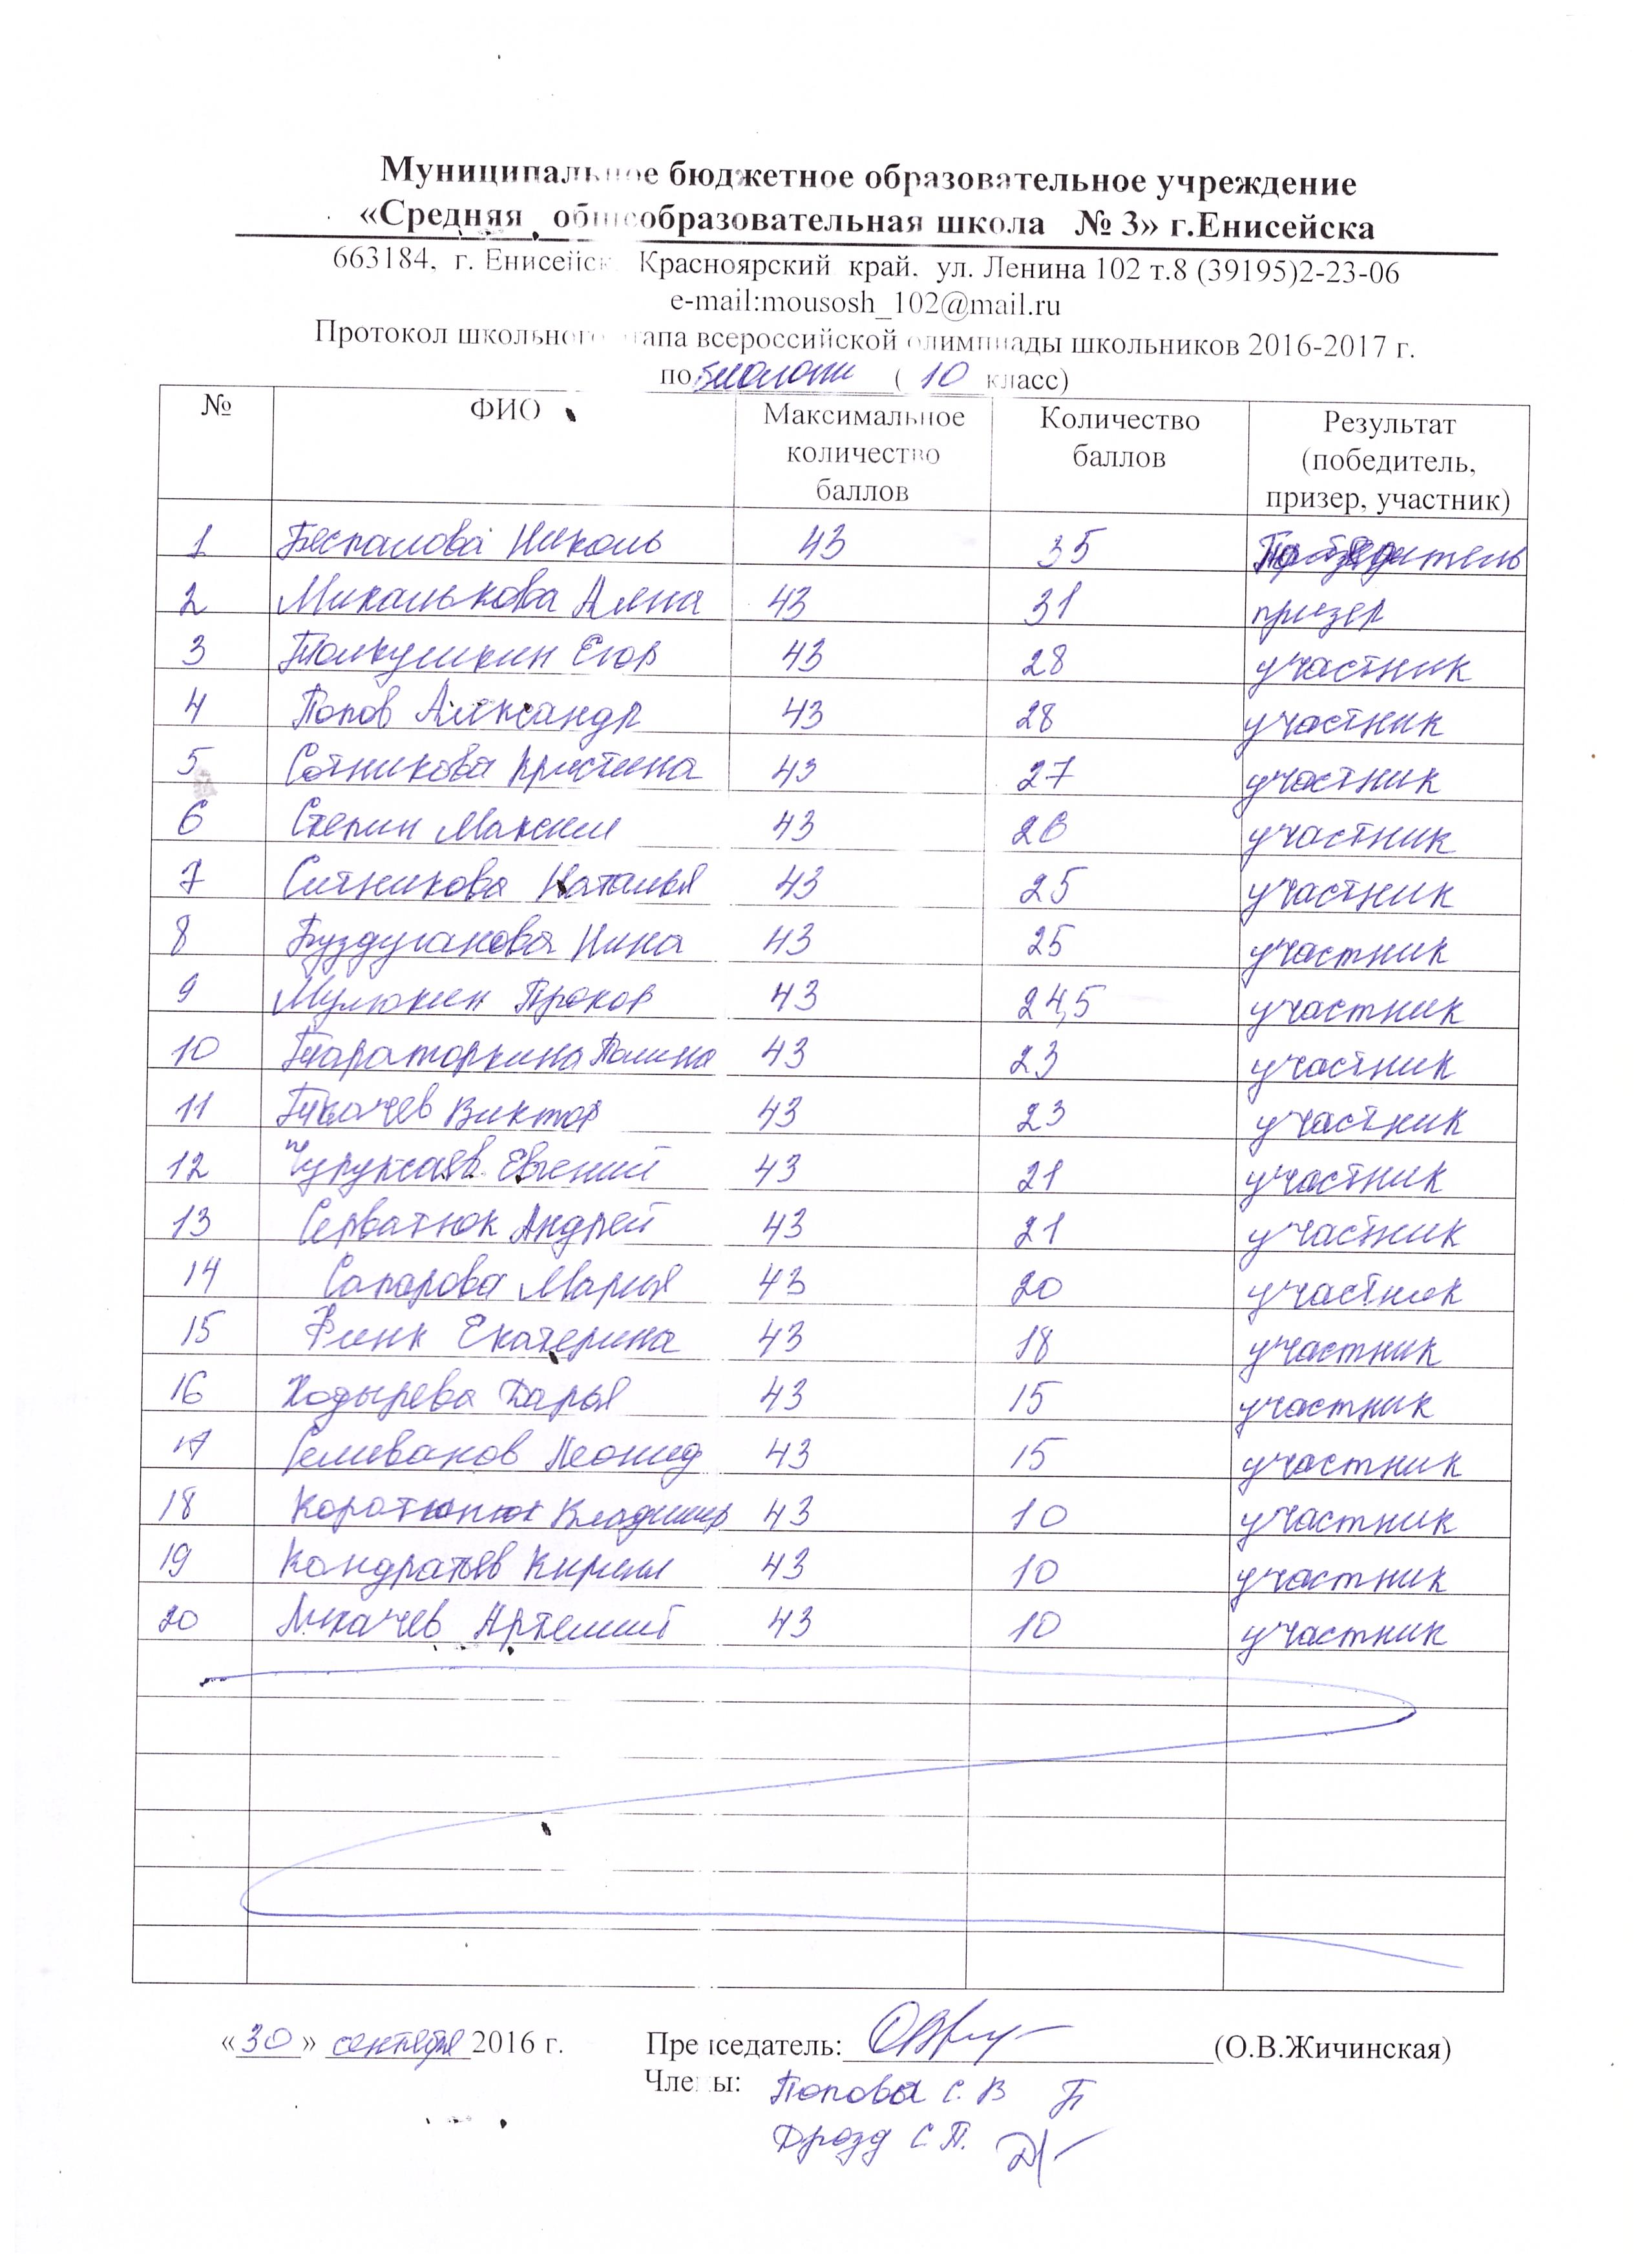 Муниципальное бюджетное образовательное учреждение
«Средняя общеобразовательная школа № 3» г.Енисейска
663184, г. Енисейск Красноярский край, ул. Ленина 102 т.8 (39195)2-23-06
e-mail:mousosh_102@mail.ru
Протокол школьного этапа всероссийской олимпиады школьников 2016-2017 г.
по биологии ( 10 класс)
№ ФИО Максимальное количество баллов Количество баллов Результат (победитель, призер, участник)
1 Беспалова Николь 43 35 Победитель
2 Микалькова Алена 43 31 призер
3 Толкушкин Егор 43 28 участник
4 Попов Александр 43 28 участник
5 Сотникова Кристина 43 27 участник
6 Степин Максим 43 26 участник
7 Ситникова Наталья 43 25 участник
8 Буздуганова Нина 43 25 участник
9 Мулюкин Прохор 43 24,5 участник
10 Тараторкина Полина 43 23 участник
11 Ткачев Виктор 43 23 участник
12 Евгений 43 21 участник
13 Серватюк Андрей 43 21 участник
14 Сапарова Марья 43 20 участник
15 Финк Екатерина 43 18 участник
16 Ходырева Дарья 43 15 участник
17 Селиванов Леонид 43 15 участник
18 Владимир 43 10 участник
19 Кондратьев Кирилл 43 10 участник
20 Лихачев Артемий 43 10 участник
«30» сентября 2016 г. Председатель: (О.В.Жичинская)
Члены: Попова С. В
Дрозд С П.